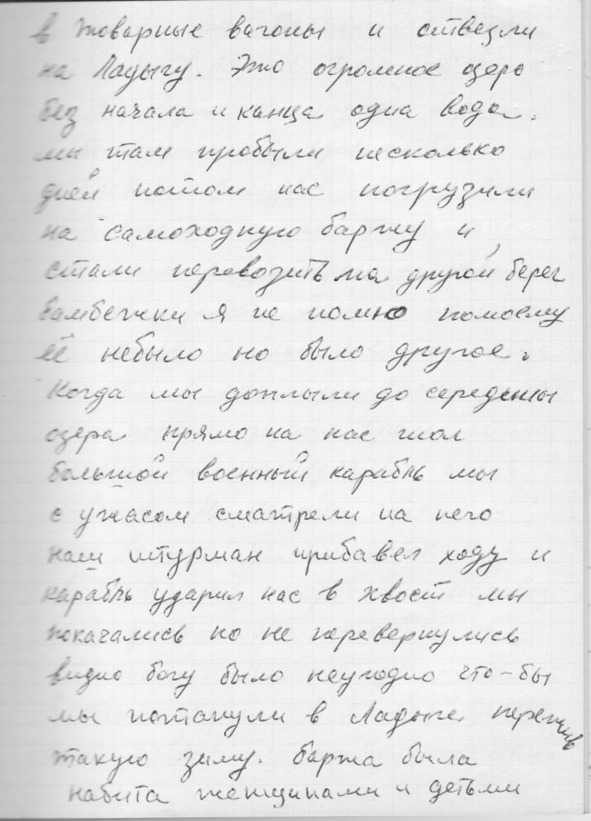 в товарные вагоны и отвезли
на Ладыгу. Это огромное озеро
без начала и канца одна вода.
мы там пробыли несколько
дней потом нас погрузили
на самоходную баржу и,
стали перевозить на другой берег
бамбёжки я не помню помоему
её небыло но было другое.
Когда мы доплыли до середины
озера прямо на нас шол
большой военный карабль мы
с ужасом сматрели на него
наш штурман прибавел ходу и
карабль ударил нас в хвост мы
покачались но не перевернулись
видно богу было неугодно что-бы
мы потанули в Ладыге, пережив
такую зиму. баржа была
набита женщинами и детьми